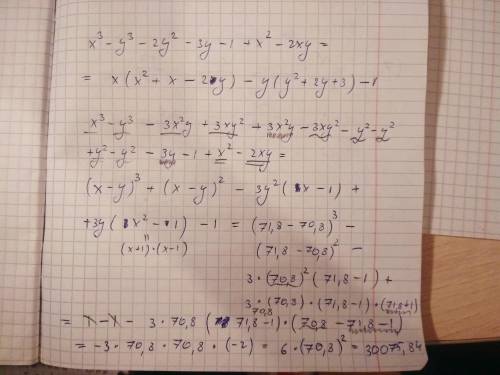 x³ - y³ - 2y² - 3y - 1 + x² - 2xy =
= x(x² + x - 2y) - y(y² + 2y + 3) - 1
x³ - y³ - 3x²y + 3xy² + 3x²y - 3xy² - y² - y²
+y² - y² - 3y - 1 + x² - 2xy =
(x - y)³ + (x - y)² - 3y²(x - 1) +
+3y(x² - 1) - 1 = (71,8 - 70,8)³ -
(x+1)·(x-1)
(71,8 - 70,8)² -
3·(70,8)²(71,8 - 1) +
3·(70,8)·(71,8-1)·(71,8+1)
= 1 - 1 - 3·70,8(71,8-1)·(70,8 - 71,8 - 1)
70,8
= -3·70,8·70,8·(-2) = 6·(70,8)² = 30075,84